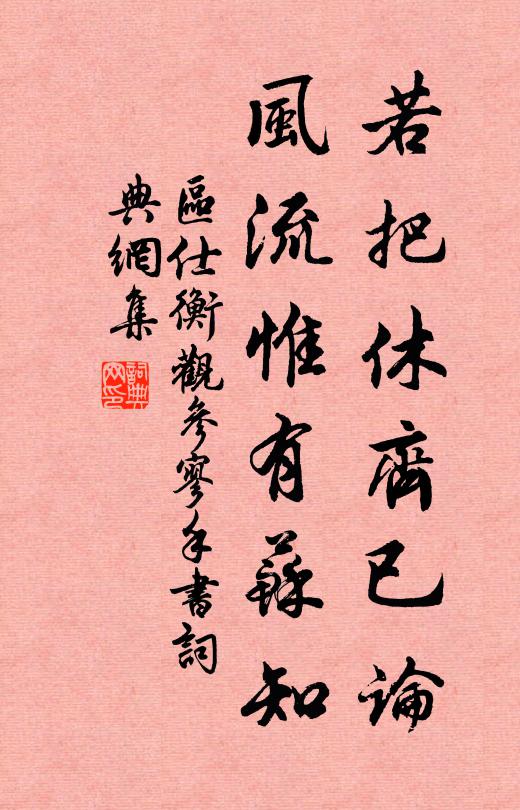 若把休齊已論
風流惟有蘇知
區仕衡觀參寥手書詞
典網集
詞典
网印